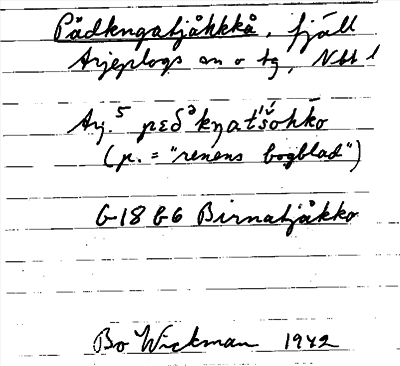 Pädkngatjåkkkå, fjäll
Arjeplogs sn o tg, Nbt l
Arj.⁵ pεδᵊkŋat́šohko
(p. = "renens bogblad")
G-18 G6 Birnatjåkko
Bo Wickman 1942